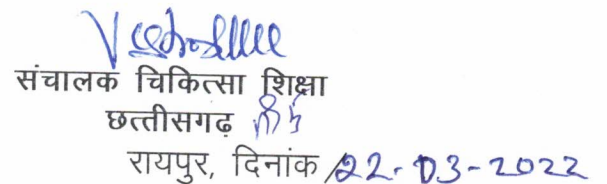 संचालक चिकित्सा शिक्षा
छत्तीसगढ़
रायपुर, दिनांक 22-03-2022